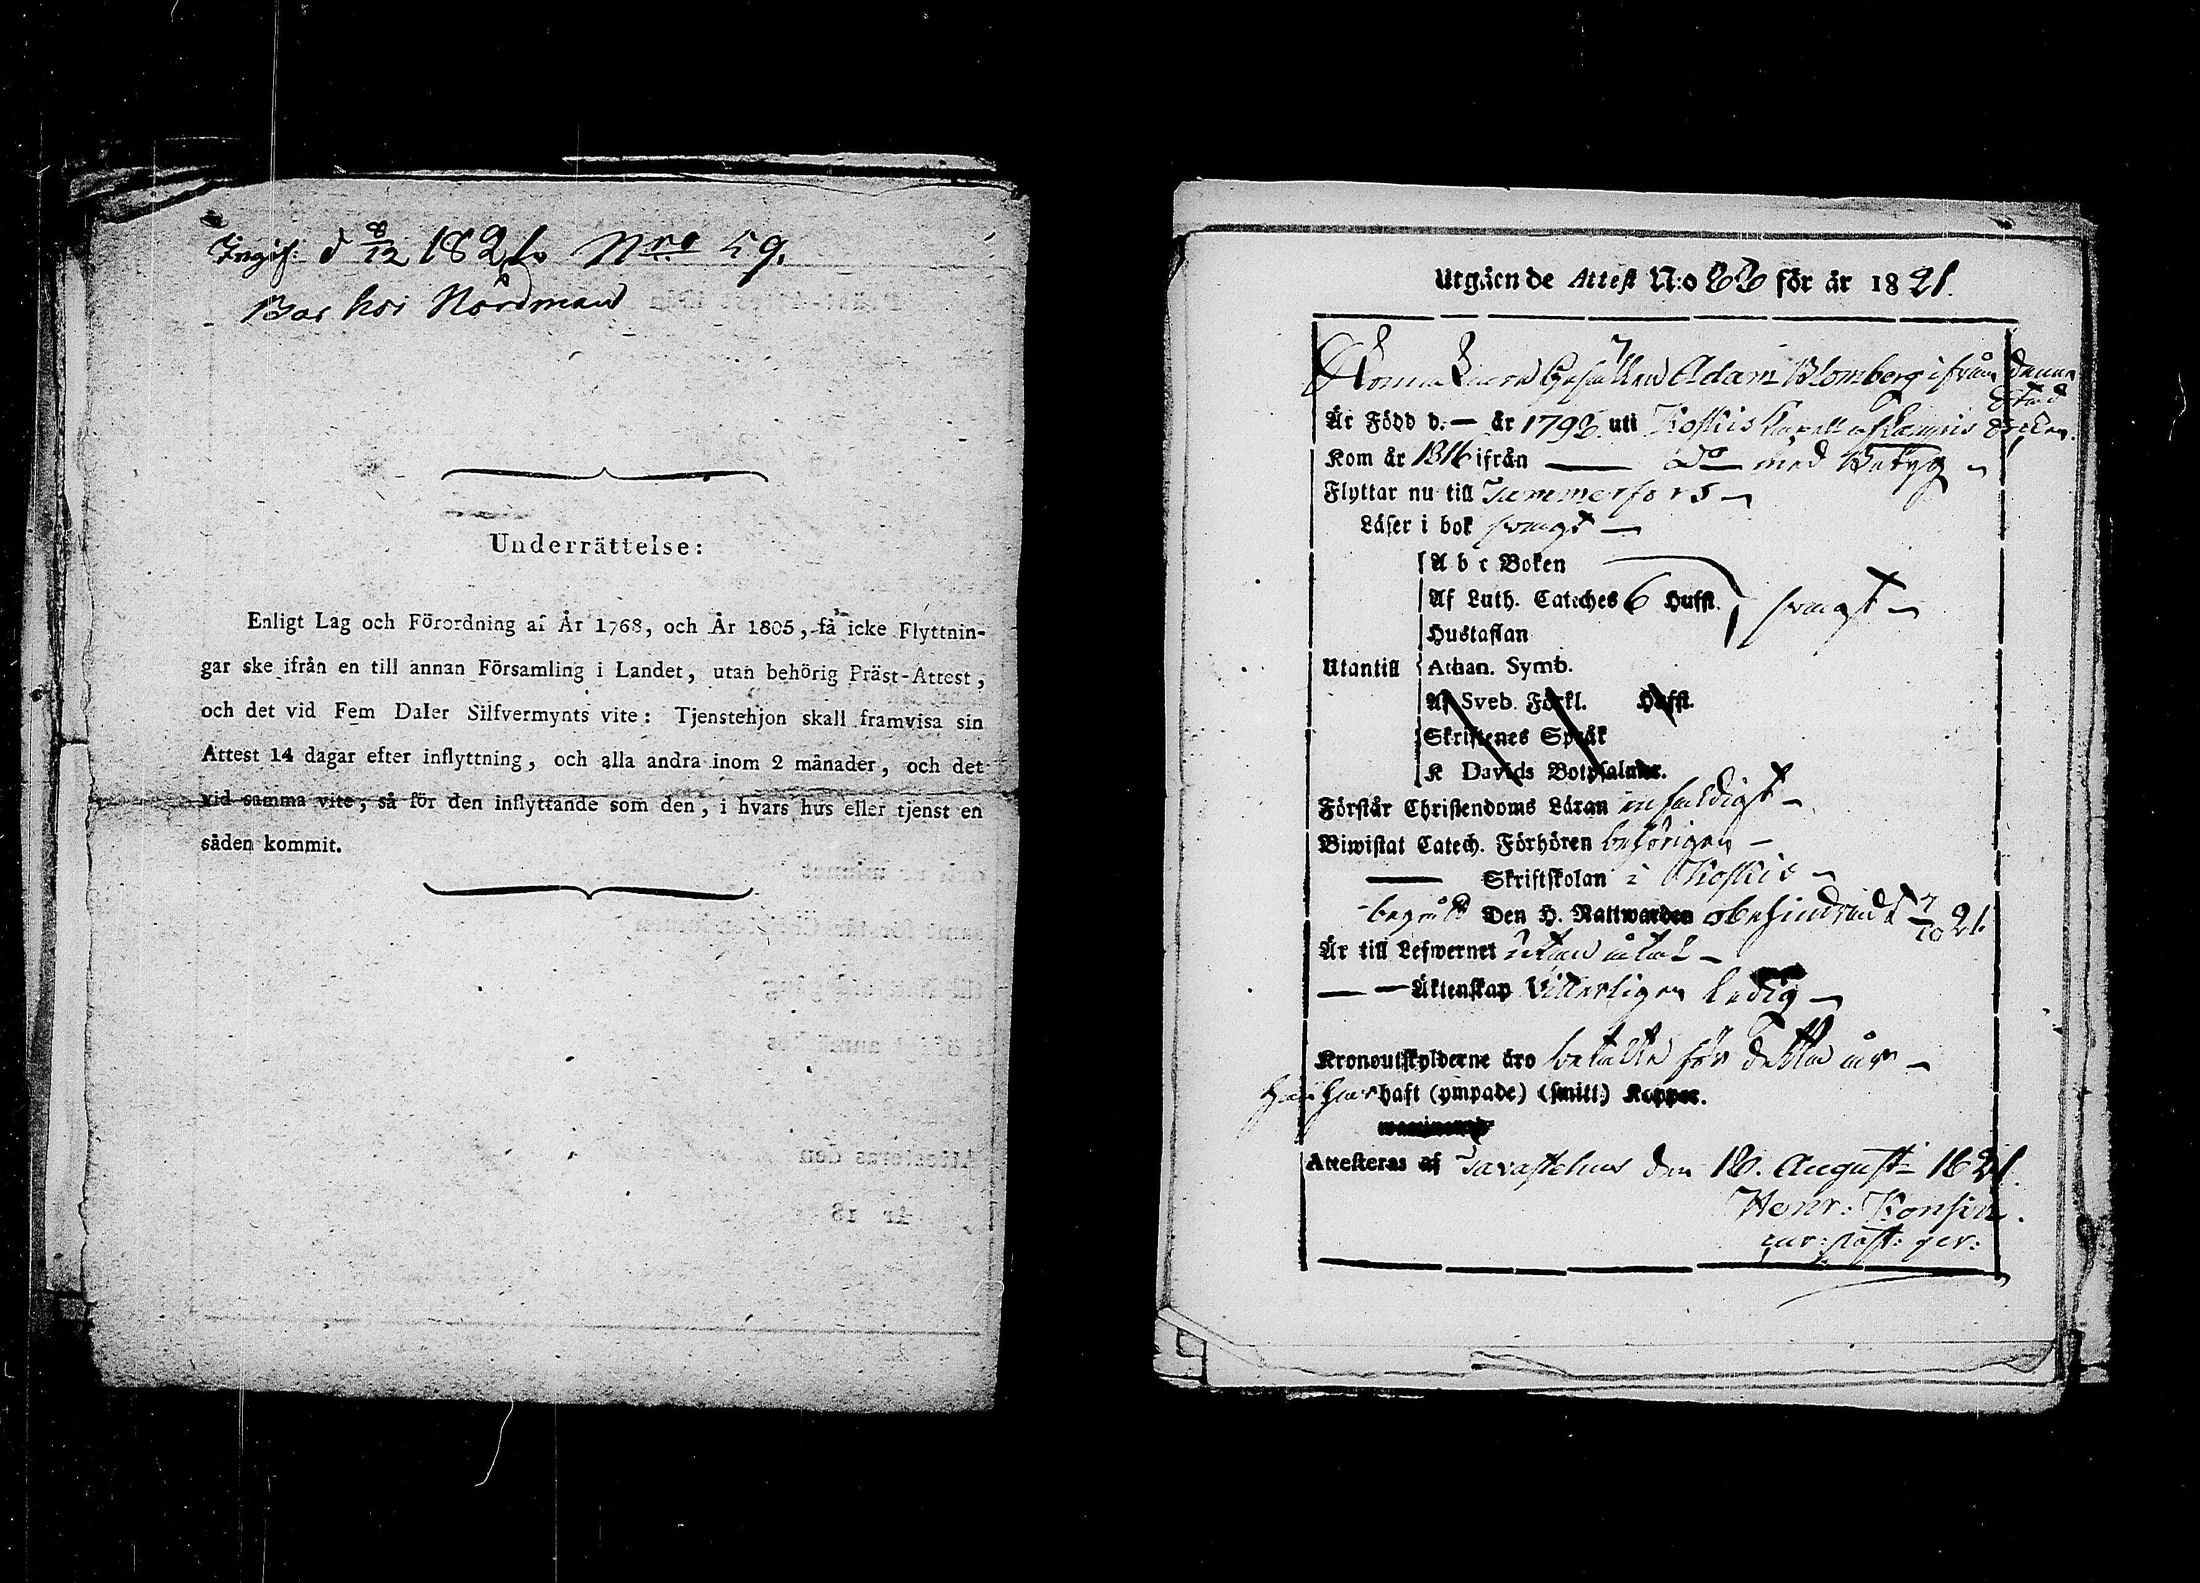 Ingif: d 8/12 1821. Nro 59.
Bor hos Nordman
Underrättelse:
Enligt Lag och Förordning af År 1768, och År 1805, få icke Flyttnin-
gar ske ifrån en till annan Församling i Landet, utan behörig Präst-Attest,
och det vid Fem Daler Silfvermynts vite: Tjenstehjon skall framvisa sin
Attest 14 dagar efter inflyttning, och alla andra inom 2 månader, och det
vid samma vite, så för den inflyttande som den, i hvars hus eller tjenst en
sådan kommit.
Utgående Attest N:o för år 1821.
Gesällen Adam Blomberg ifrån denna
stad
Är Född d. — år 179 uti Koskis Kapell af Lampis Socken.
Kom år 1816 ifrån — Do med Betyg
Flyttar nu till Tammerfors
Läser i bok swagt
A b c Boken
Af Luth. Cateches 6 Hufst. swagt
Hustaflan
Utantill Athan. Symb.
Af Sveb. Förkl. Hufst.
Skriftenes Språk
K Davids Botpsalmer.
Förstår Christendoms Läran enfaldigt
Biwistat Catech. Förhören behörigen
— Skriftskolan i Koskis
begått Den H. Nattwarden obehindradt 7/10 21.
Är till Lefwernet utan åtal
— Äktenskap Wetterligen ledig
Kronoutskylderne äro betalte för detta år
haft (ympade) (smitt.) Koppor.
Attesteras af Tavastehus den 18. Augusti 1821.
Henr: Konsin.
cur: past: ger: